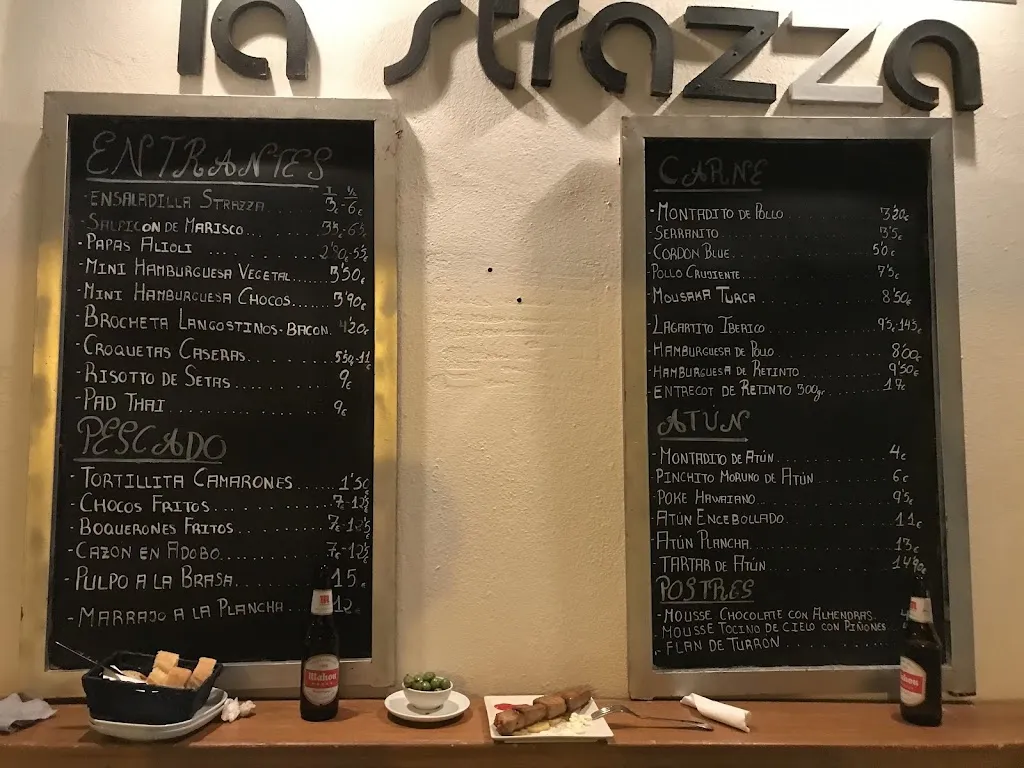 la strazza
ENTRANTES
1 ½
-ENSALADILLA STRAZZA........3€-6€
-SALPICÓN DE MARISCO...3'5€-6'5€
-PAPAS ALIOLI......2'90€-5'5€
-MINI HAMBURGUESA VEGETAL...3'50€
-MINI HAMBURGUESA CHOCOS...3'90€
-BROCHETA LANGOSTINOS-BACON.4'20€
-CROQUETAS CASERAS......5'50-11€
-RISOTTO DE SETAS......9€
-PAD THAI......9€
PESCADO
-TORTILLITA CAMARONES....1'50€
-CHOCOS FRITOS......7€-12'5€
-BOQUERONES FRITOS......7€-12'5€
-CAZON EN ADOBO......7€-12'5€
-PULPO A LA BRASA......15€
-MARRAJO A LA PLANCHA...12€
CARNE
-MONTADITO DE POLLO......3'20€
-SERRANITO......3'5€
-CORDON BLUE......5'0€
-POLLO CRUJIENTE......7'5€
-MOUSAKA TURCA......8'50€
-LAGARTITO IBERICO......9'5-14'5€
-HAMBURGUESA DE POLLO......8'00€
-HAMBURGUESA DE RETINTO......9'50€
-ENTRECOT DE RETINTO 300gr....17€
ATÚN
-MONTADITO DE ATÚN......4€
-PINCHITO MORUNO DE ATÚN......6€
-POKE HAWAIANO......9'5€
-ATÚN ENCEBOLLADO......11€
-ATÚN PLANCHA......13€
-TARTAR DE ATÚN......14'90€
POSTRES
-MOUSSE CHOCOLATE CON ALMENDRAS.
-MOUSSE TOCINO DE CIELO CON PIÑONES
-FLAN DE TURRÓN......
Mahou
Mahou